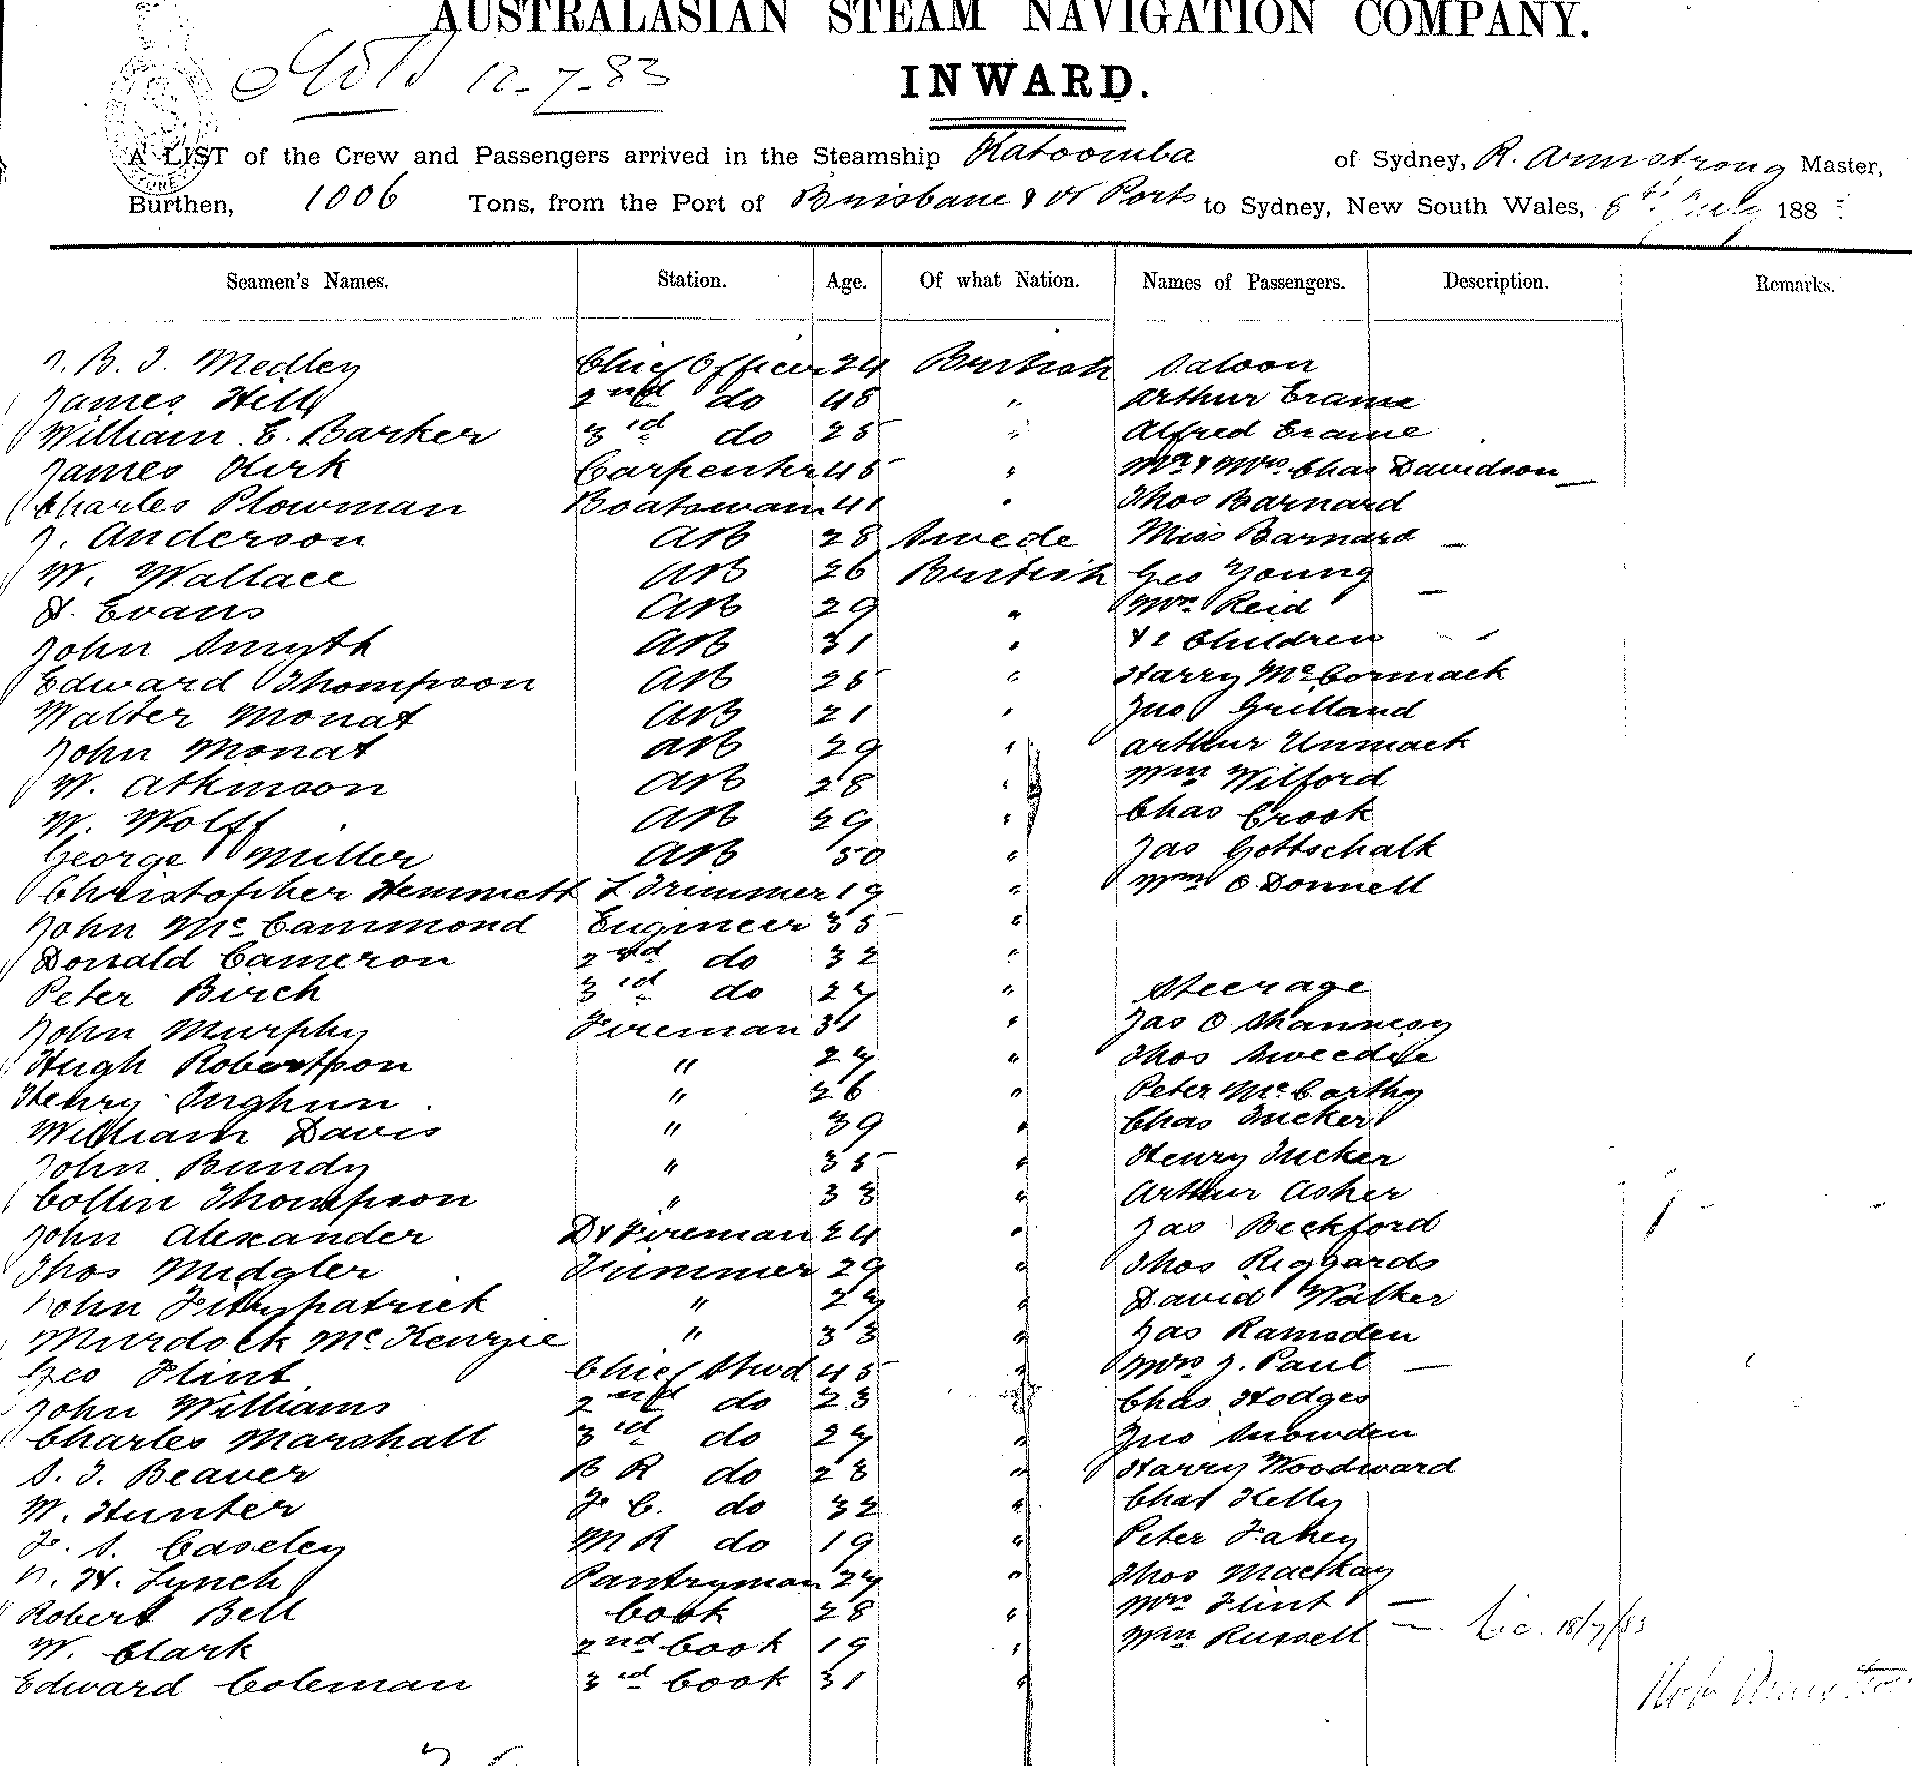 AUSTRALASIAN STEAM NAVIGATION COMPANY.
12-7-83
INWARD.
A LIST of the Crew and Passengers arrived in the Steamship Katoomba of Sydney, R. Armstrong Master,
Burthen, 1006 Tons, from the Port of Brisbane & Ports to Sydney, New South Wales, 8th July 188
Seamen's Names. Station. Age. Of what Nation. Names of Passengers. Description. Remarks.
B. J. Medley Chief Officer 24 British Saloon
James Hill 2nd do 48 " Arthur Erame
William E. Barker 3rd do 25 " Alfred Erame
James Kirk Carpenter 45 " Mr & Mrs Chas Davidson
Charles Plowman Boatswain 41 " Thos Barnard
J. Anderson AB 28 Swede Miss Barnard
W. Wallace AB 26 British Geo Young
H. Evans AB 29 " Mrs Reid
John Smyth AB 31 " & 2 Children
Edward Thompson AB 25 " Harry McCormack
Walter Monat AB 21 " Jno Grilland
John Monat AB 29 " Arthur Unmack
W. Atkinson AB 28 " Wm Wilford
W. Wolff AB 29 " Chas Crook
George Miller AB 50 " Jas Gottschalk
Christopher Hemmett L Trimmer 19 " Wm O Donnell
John McCammond Engineer 35 "
Donald Cameron 2nd do 32 "
Peter Birch 3rd do 27 " Steerage
John Murphy Fireman 31 " Jas O Shannesy
Hugh Robertson " 27 " Thos Sweedie
Henry Inghun " 26 " Peter McCarthy
William Davis " 39 " Chas Tucker
John Bundy " 35 " Henry Tucker
Collin Thompson " 33 " Arthur Asher
John Alexander Dy Fireman 24 " Jas Beckford
Thos Midgler Trimmer 29 " Thos Riggards
John Fitzpatrick " 27 " David Walker
Murdock McKenzie " 33 " Jas Ramsden
Geo Flint Chief Stwd 45 " Mrs J. Paul
John Williams 2nd do 23 " Chas Hodges
Charles Marshall 3rd do 27 " Jno Snowden
S. J. Beaver B R do 28 " Harry Woodward
W. Hunter F C. do 32 " Chas Kelly
F. S. Caseley M R do 19 " Peter Fahey
H. Lynch Pantryman 27 " Thos Mackay
Robert Bell Cook 28 " Mrs Flint
W. Clark 2nd Cook 19 " Wm Russell 18/7/83
Edward Coleman 3rd Cook 31 "